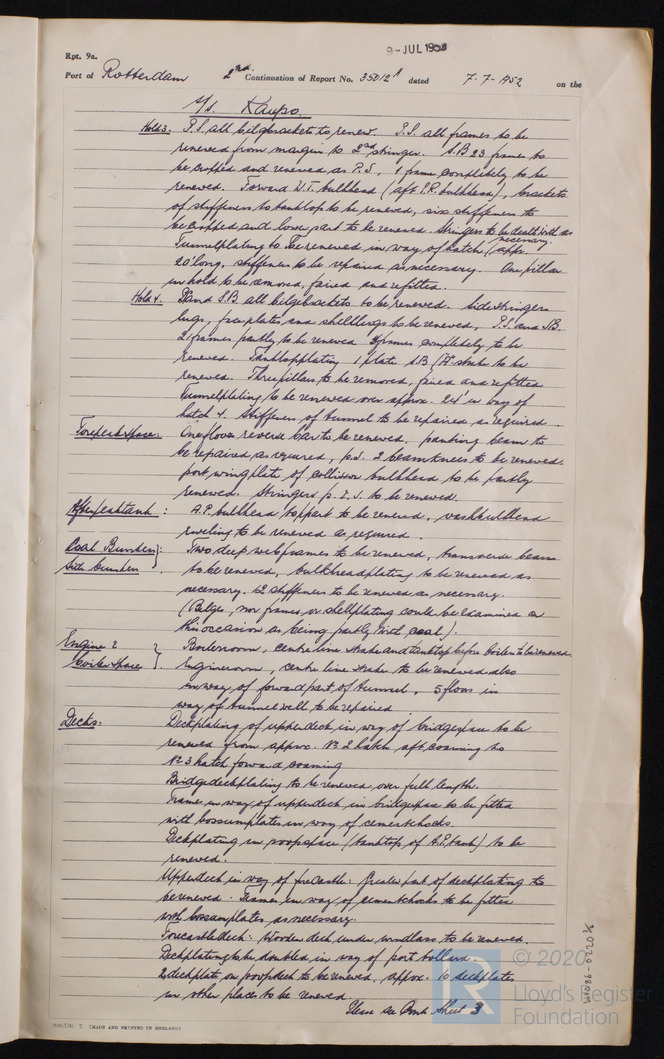 9-JUL 1952
Rpt. 9a.
Port of Rotterdam 2nd Continuation of Report No. 35012A dated 7-7-1952 on the
S/s. Kaupo.
Hold 3. P.S. all bilgebrackets to renew. P.S. all frames to be
renewed from margin to 2nd stringer. S.B 23 frame to
be cropped and renewed as P.S., 1 frame completely to be
renewed. Forward W.T. bulkhead (aft P.R. bulkhead), brackets
of stiffeners to tanktop to be renewed, six stiffeners to
be cropped and lower part to be renewed. Stringers to be dealt with as
necessary.
Tunnelplating to be renewed in way of hatch (appr.
20' long, stiffeners to be repaired as necessary. One pillar
in hold to be removed, faired and refitted.
Hold 4. P and S.B. all bilgebrackets to be renewed. Sidestringer
lugs, faceplates and shelllugs to be renewed, P.S. and S.B.
21 frames partly to be renewed frames completely to be
renewed. Tanktopplating 1 plate S.B. "A" strake to be
renewed. Three pillars to be removed, faired and refitted
Tunnelplating to be renewed over approx. 24' in way of
hatch 4. Stiffeners of tunnel to be repaired as required.
Forepeakspace: One floor reverse bar to be renewed, panting beam to
be repaired as required, p.s. 2 beamknees to be renewed.
port wingplate of collision bulkhead to be partly
renewed. Stringers p. & S. to be renewed.
Afterpeaktank: A.P. bulkhead toppart to be renewed, washbulkhead
riveting to be renewed as required.
Coal Bunker: Two deep webframes to be renewed, transverse beam
Side bunker to be renewed, bulkheadplating to be renewed as
necessary. 12 stiffeners to be renewed as necessary.
(Bilges, nor frames, or shellplating could be examined on
this occasion as being partly with coal).
Engine & Boilerroom, centre line strake and tanktop before boiler to be renewed
Boiler Space Engineroom, centre line strake to be renewed also
in way of forward part of tunnel, 5 floors in
way of tunnel well to be repaired
Decks: Deckplating of upperdeck in way of bridgespace to be
renewed from approx. No 2 hatch aft coaming to
No 3 hatch forward coaming
Bridgedeckplating to be renewed over full length.
Frame in way of upperdeck in bridgespace to be fitted
with bossumplates in way of cementchocks.
Deckplating in poopspace (tanktop of A.P. tank) to be
renewed.
Upperdeck in way of forecastle: Greater part of deckplating to
be renewed. Frames in way of cementchocks to be fitted
with bossumplates as necessary.
Forecastledeck: Wooden deck under windlass to be renewed.
Deckplating to be doubled in way of port bollard.
2 deckplates on poopdeck to be renewed, approx. 10 deckplates
in other places to be renewed
Please see Cont. Sheet 3
(MADE AND PRINTED IN ENGLAND)
© 2020
Lloyd's Register
Foundation